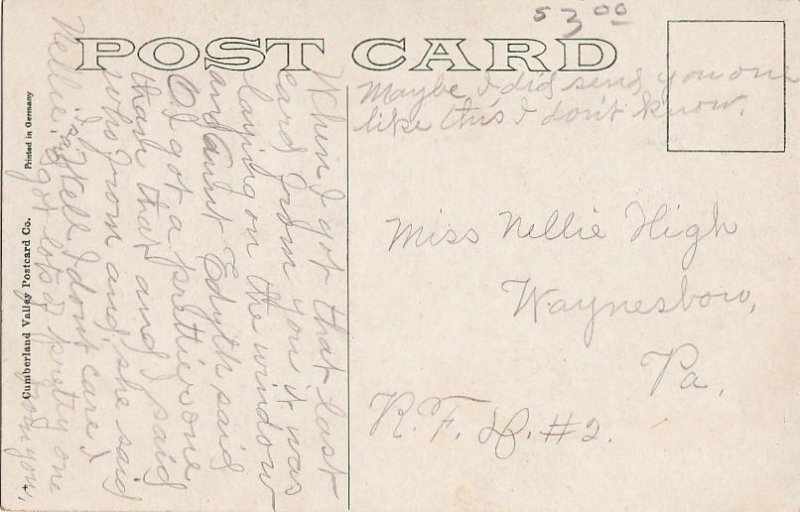 53 00
POST CARD
Maybe I did send you one
like this I don't know.
Miss Nellie High
Waynesboro,
Pa.
R.F.D. #2.
When I got that last
card from you it was
laying on the window
and Aunt Edyth said
O I got a prettier one
than that and I said
who from and she said
Nellie. Well I don't care I
got lots of pretty one
from you,
Cumberland Valley Postcard Co. Printed in Germany